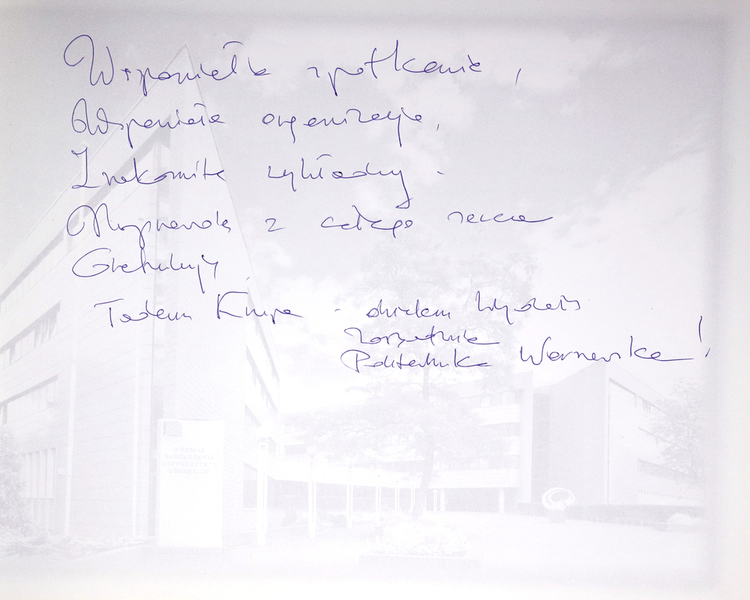 Wspaniałe spotkanie,
Wspaniała organizacja,
Znakomite wykłady.
Naprawdę z całego serca
Gratuluję
Tadeusz Krupa - dziekan Wydziału
Zarządzania
Politechnika Warszawska!